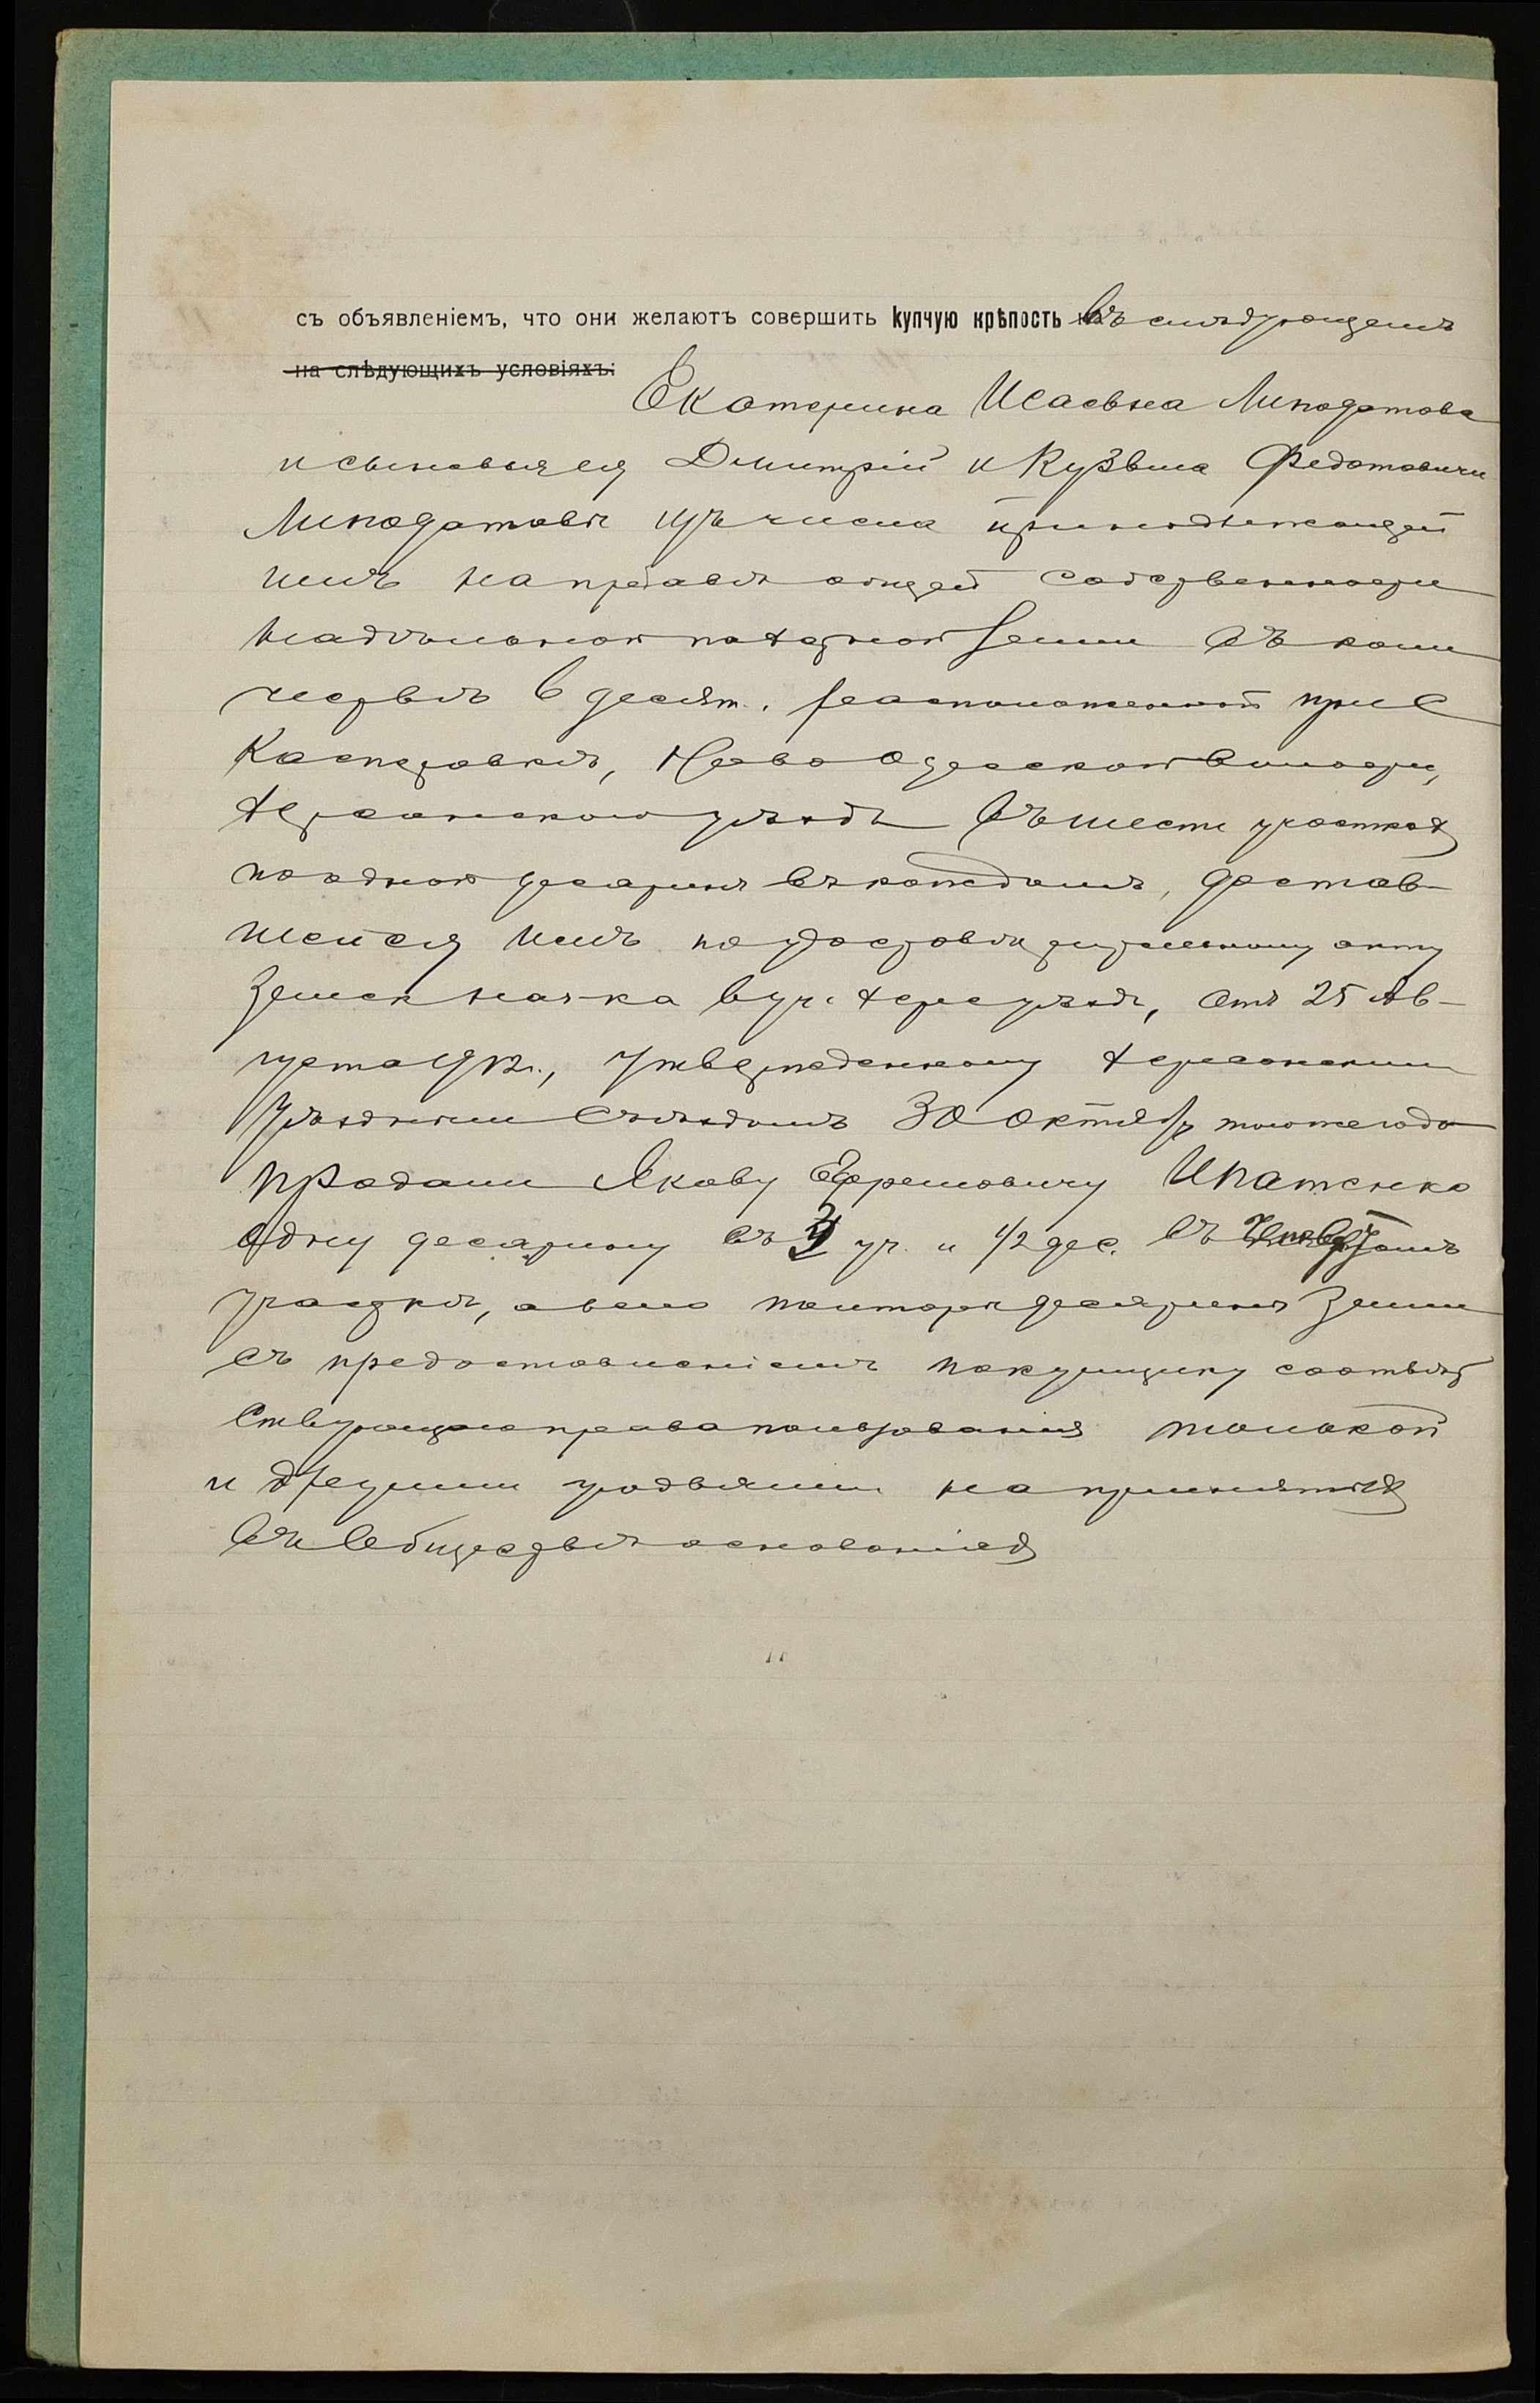 съ объявленіемъ, что они желаютъ совершить купчую крѣпость въ слѣдующемъ
на слѣдующихъ условіяхъ:
Екатерина Исаевна Липодатова
и сыновья ея Дмитрій и Кузьма Федотовичи
Липодатовы изъ числа принадлежащей
имъ на правѣ общей собственности
надѣльной пахатной земли въ коли
чествѣ 6 десят., расположенной при с
Касперовкѣ, Ново Одесской волости,
Херсонскаго уѣзда въ шести участках
по одной десятинѣ въ каждомъ, достав-
шейся имъ по удостовѣрительному акту
Земск нач-ка 6 уч. Херс уѣзда, отъ 25 Ав-
густа г., утвержденному Херсонским
Уѣзднымъ Съѣздомъ 30 октября того же года
продали Якову Ефремовичу Ипатенко
одну десятину въ уч. и 1/2 дес. въ
участкѣ, а всего полторы десятины земли
съ предоставленіемъ покупщику соотвѣт
ствующаго права пользованія толокой
и другими угодьями на принятых
въ Обществѣ основаніях